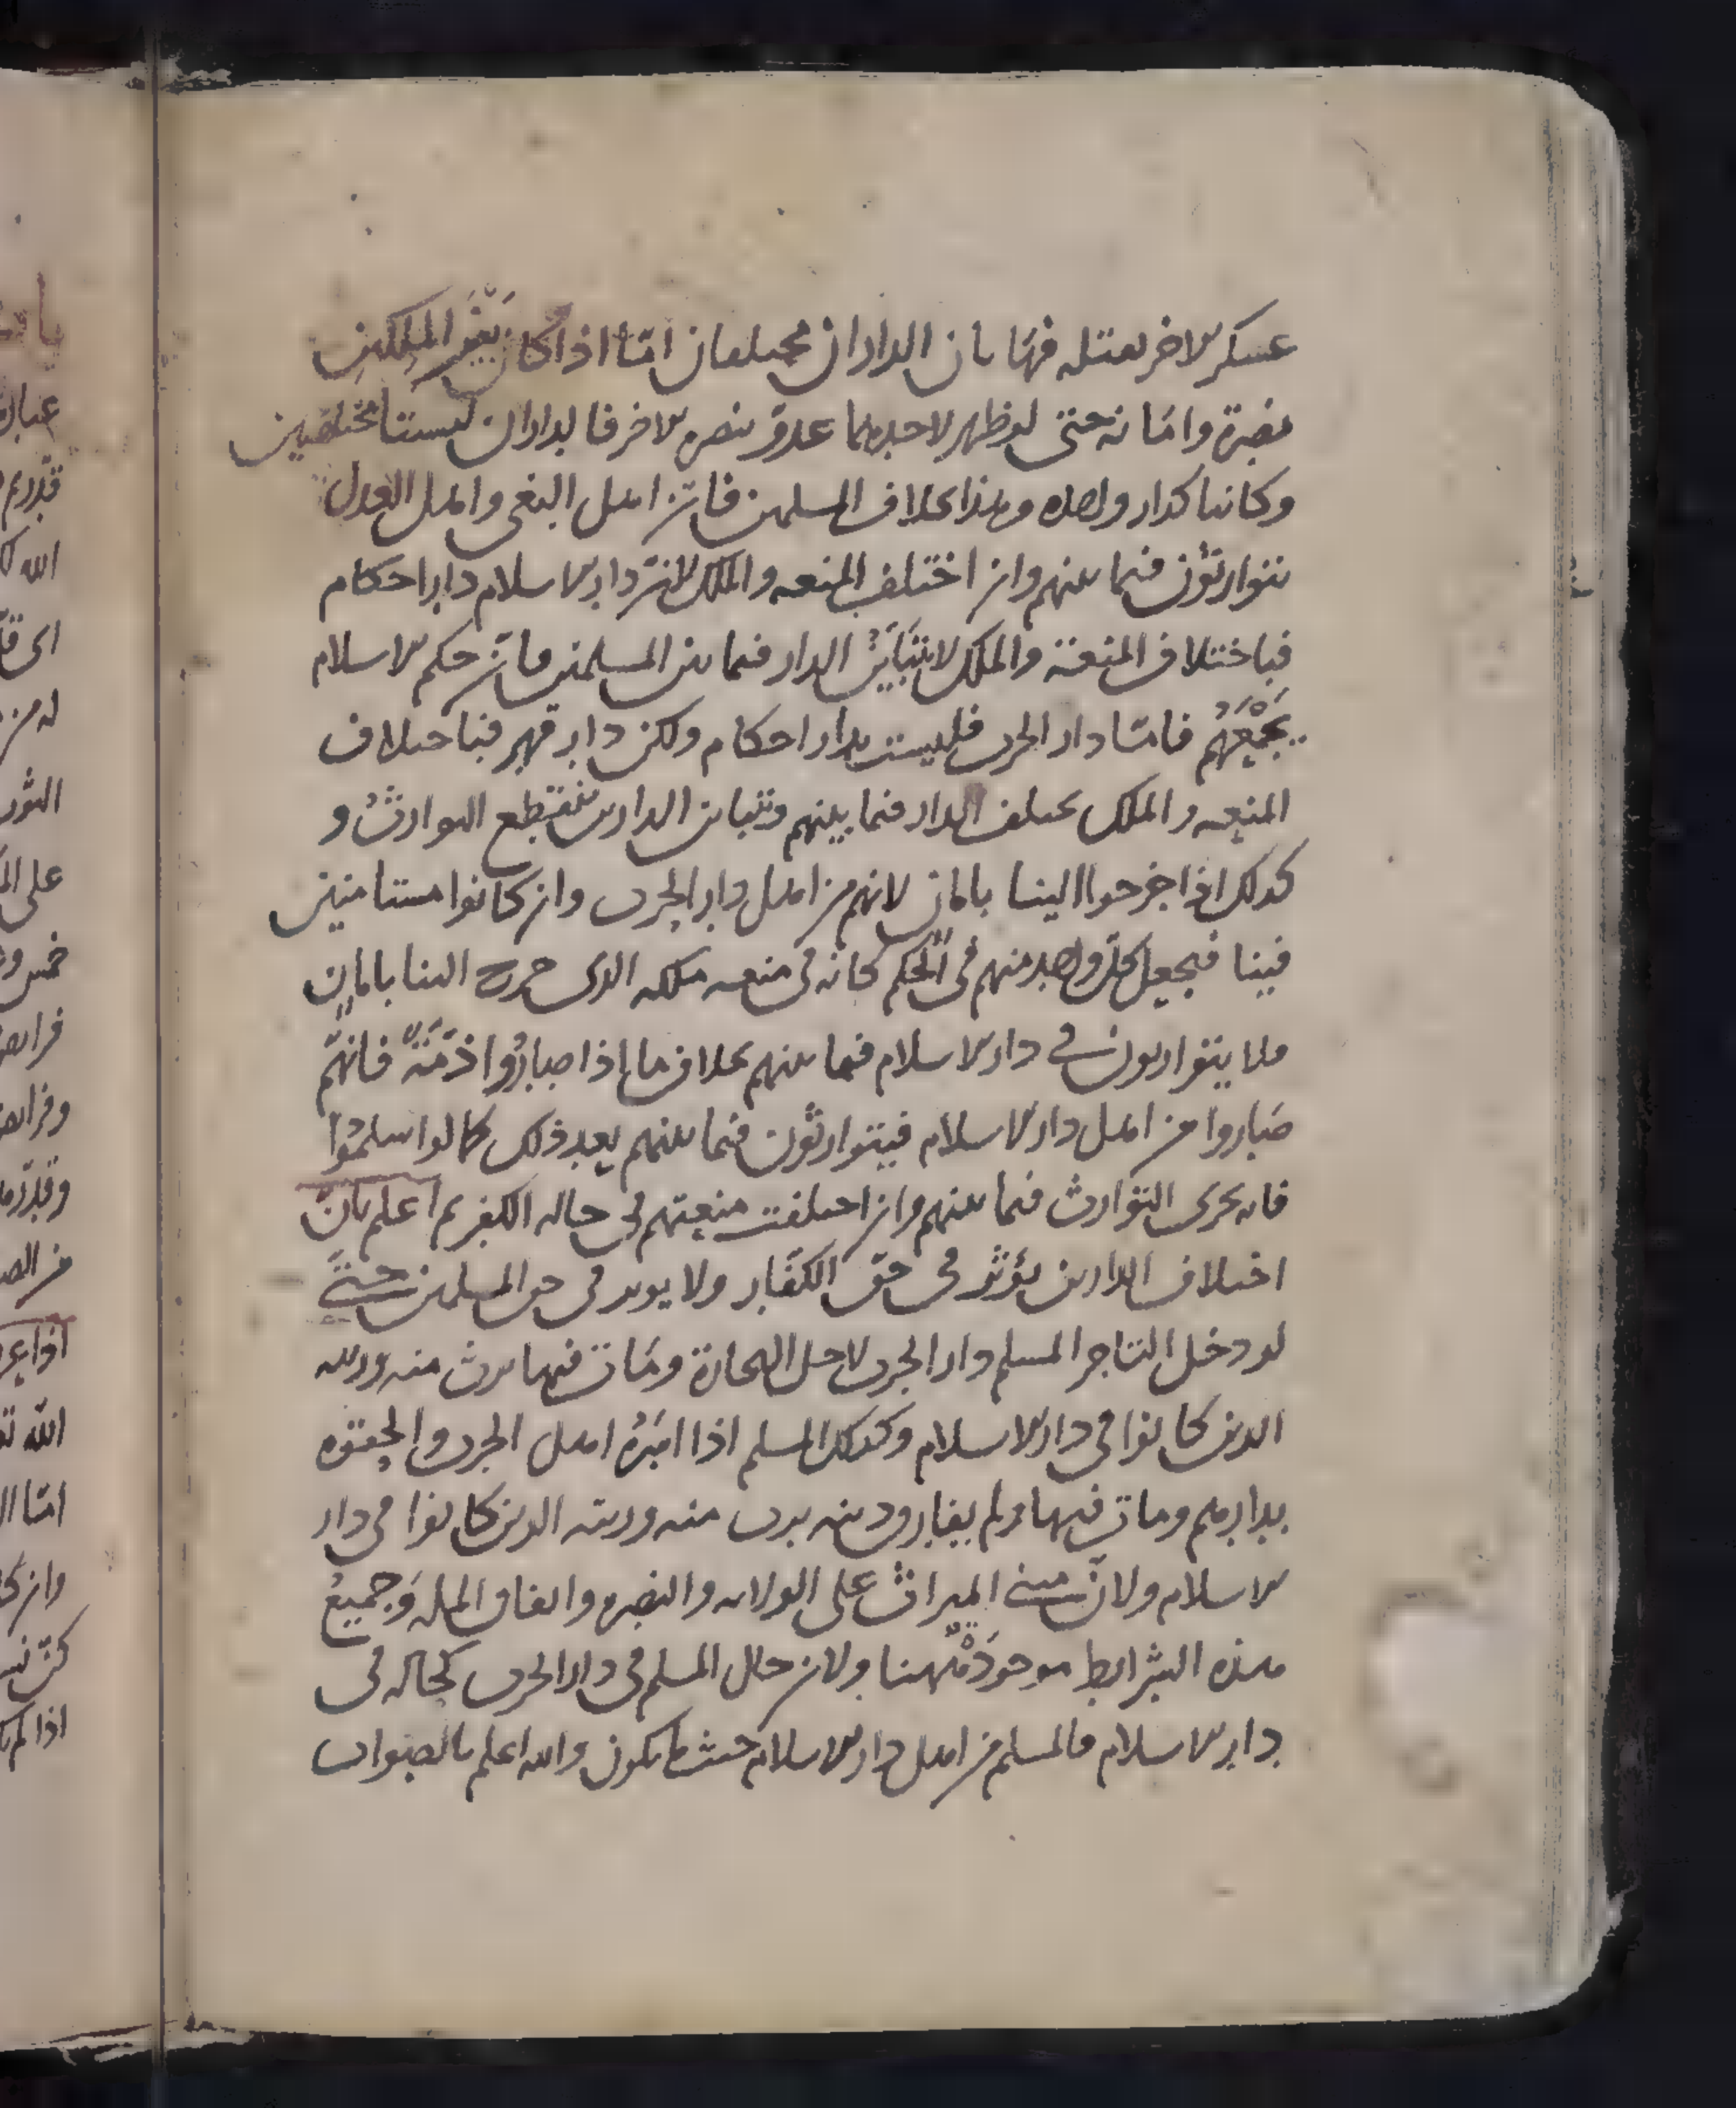 عسكر الاخر يقتله فهاتان الداران مختلفان امّا اذا كان بَيْنَ المَلِكين
نصرة وامّا نه حتى لو ظهر لاحدهما عدوّ ينصره الاخر فالداران ليستا مختلفين
وكانتا كدار واحده وهذا بخلاف المسلمين فانّ اهل البغى واهل العدل
يتوارثون فيما بينهم وان اختلف المنعه والملك لانّ دار الاسلام دار احكام
فباختلاف المنعة والملك لا يتبَايَنُ الدار فيما بين المسلمين فانّ حكم الاسلام
يَجْمَعُهُم فامّا دار الحرب فليست بدار احكام ولكن دار قهر فباختلاف
المنعه والملك يختلف الدار فيما بينهم وبتباين الدارين ينقطع التوارثُ و
كذلك اذا خرجوا الينا بامان لانهم من اهل دار الحرب وان كانوا مستامنين
فينا فيجعل كلّ واحد منهم فى الحكم كانه فى منعه ملكه الذى خرج الينا بامان
فلا يتوارثون في دار الاسلام فيما بينهم بخلاف ما اذا صارُوا ذمّةً فانّهم
صَاروا من اهل دار الاسلام فيتوارثون فيما بينهم بعد ذلك كما لو اسلمُوا
فانه يجرى التوارث فيما بينهم وان اختلفت منعتهم فى حاله الكفر ثم اعلم بان
اختلاف الدارين يؤثر فى حقّ الكفّار ولا يوثر فى حق المسلمين حتى
لو دخل التاجر المسلم دار الحرب لاجل التجارة ومَات فيها يرث منه ورثته
الذين كانوا فى دار الاسلام وكذلك المسلم اذا اسَرَهُ اهل الحرب والحقوه
بدارهم ومات فيها ولم يفارق دينه يرث منه ورثته الذين كانوا فى دار
الاسلام ولانّ مبنى الميراث على الولايه والنصره واتفاق المله وَجميعُ
هذه الشرايط موجودَةٌ ههنا ولان حال المسلم فى دار الحرب كحاله فى
دار الاسلام فالمسلم من اهل دار الاسلام حيث ما يكون والله اعلم بالصواب